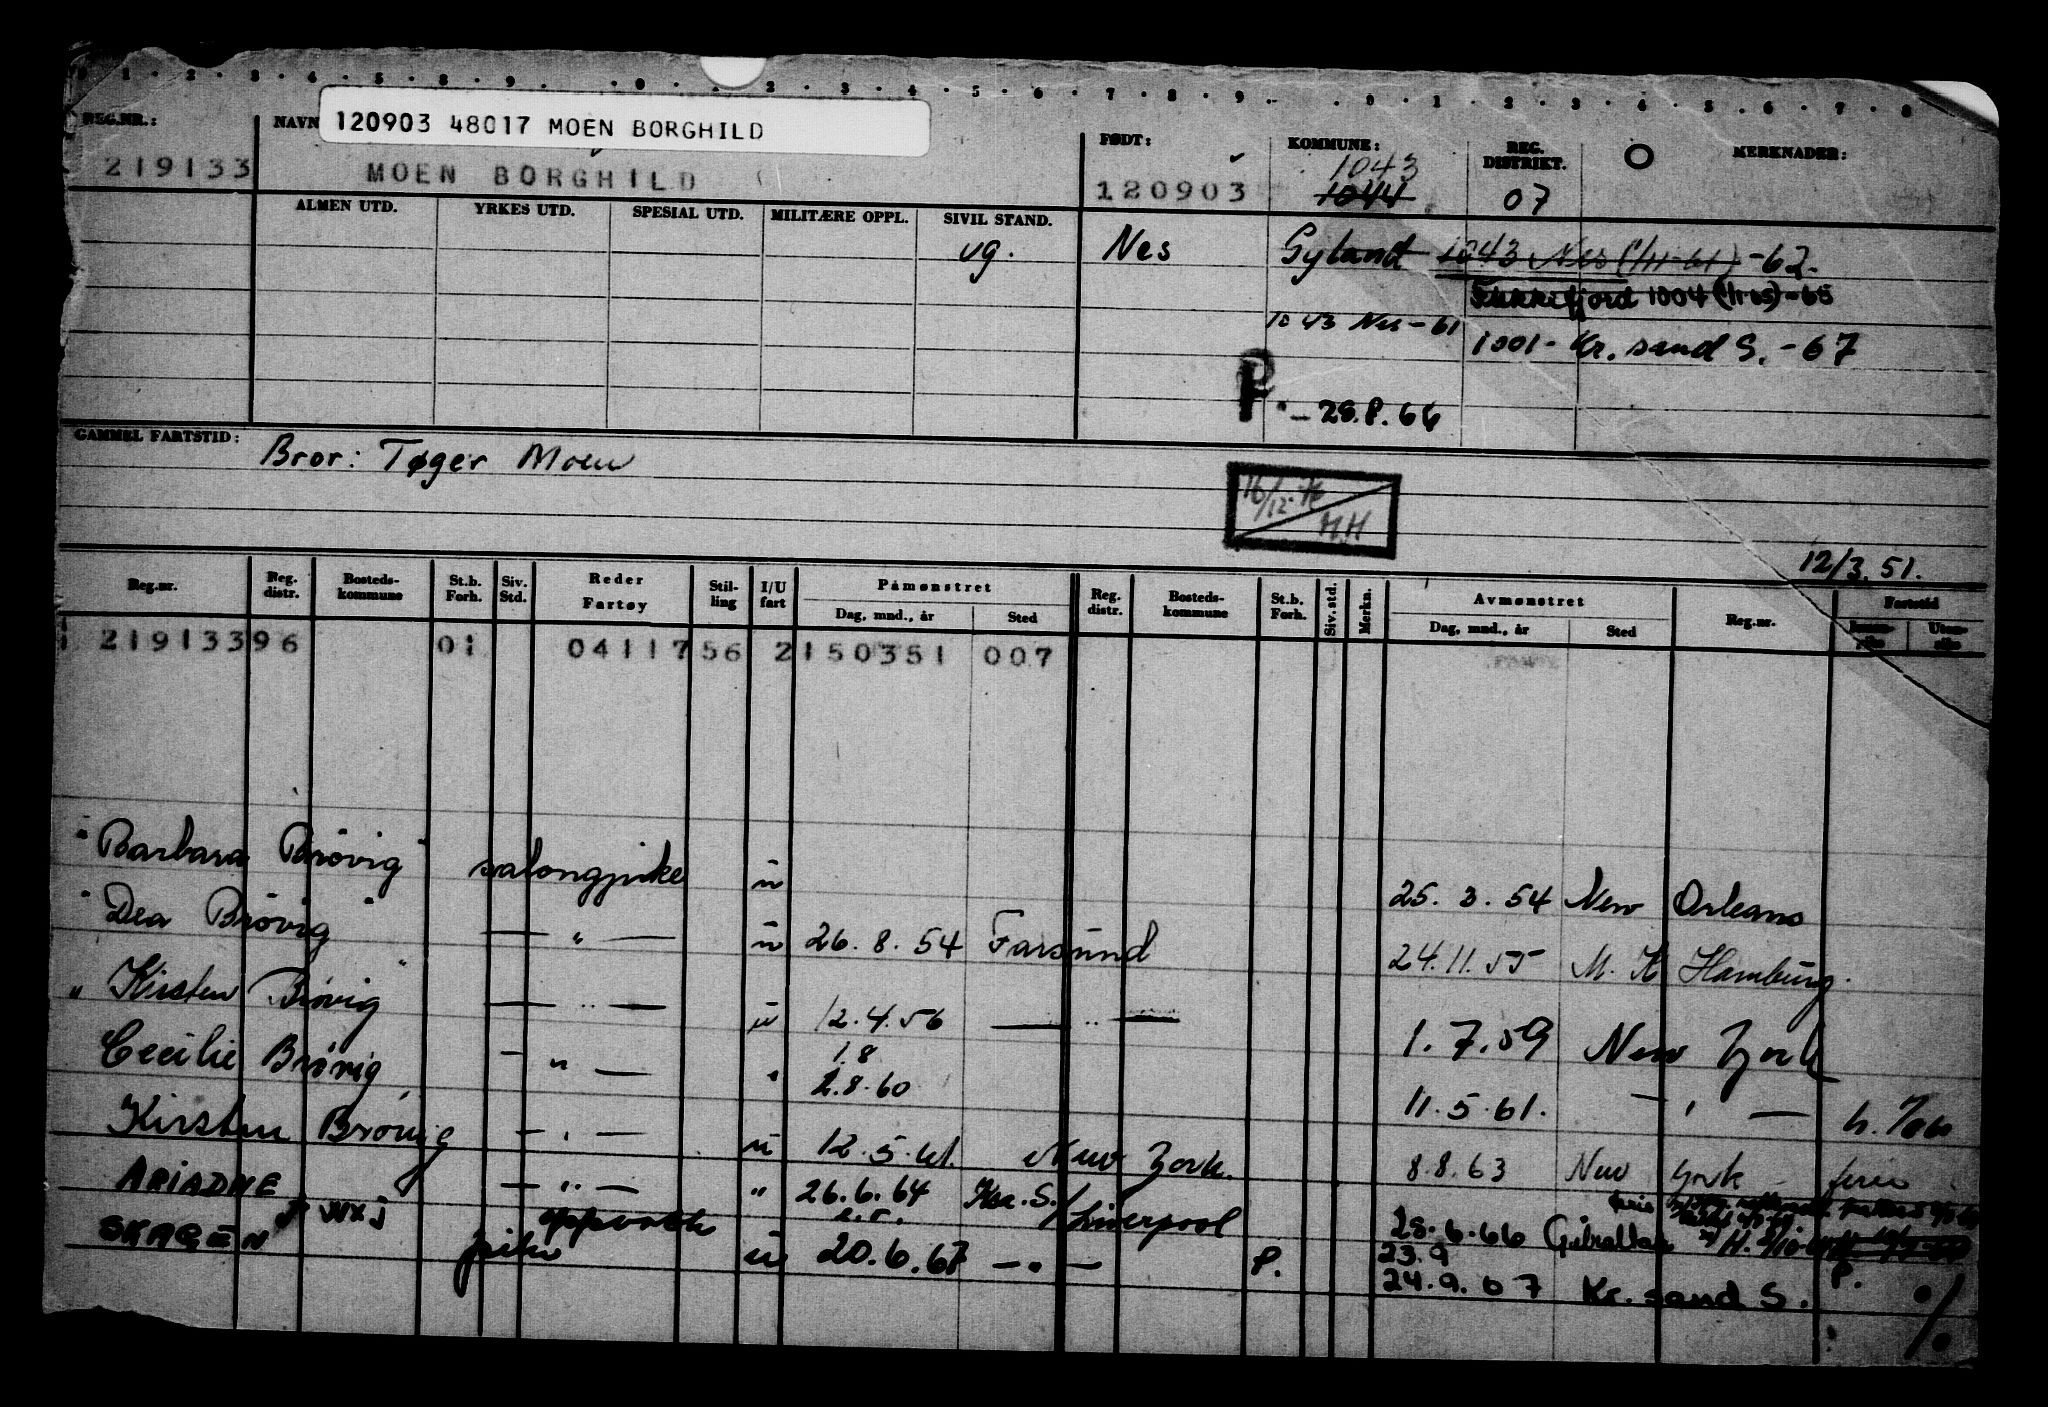 0 1 2 3 4 5 8 9 0 2 3 4 5 6 7 8 9 0 1 2 3 4 5 6 7 8
120903 48017 MOEN BORGHILD
REG.NR.: NAVN FØDT: KOMMUNE: REG. DISTRIKT. MERKNADER:
1043
219133 MOEN BORGHILD 120903 1044 07
ALMEN UTD. YRKES UTD. SPESIAL UTD. MILITÆRE OPPL. SIVIL STAND.
ug. Nes Gyland 1043 Nes (1/11-61) -62.
Flekkefjord 1004 (1/1-65) -65
1043 Nes - 61 1001 - Kr. sand S. - 67
P. - 28.8.66
GAMMEL FARTSTID: Bror: Tøger Moen
16/12. H.H
12/3.51.
Reg.nr. Reg. distr. Bosteds-kommune St.b. Forh. Siv. Std. Reder Fartøy Stil-ling I/U fart Påmønstret Dag, mnd., år Sted Reg. distr. Bosteds-kommune St.b. Forh. Siv. std. Merkn. Avmønstret Dag, mnd., år Sted Reg.nr. Fartstid Innen-riks Uten-riks
21913396 01 0411756 2150351 007
"Barbara Brøvig" salongpike u 25. 3. 54 New Orleans
"Dea Brøvig" — " — u 26. 8. 54 Farsund 24.11.55 M. K Hamburg.
"Kirsten Brøvig" — " — u 12.4.56 — " — 1.7.59 New York
1.8
Cecilie Brøvig — " — " 2.8.60 11.5.61. — " —
Kirsten Brøvig — " — u 12.5.61. New York. 8.8.63 New York ferie
ARIADNE — " — " 26.6.64 Kr. S. / Liverpool 28.6.66 Gibraltar
SKAGEN pike oppvask u 20.6.67 — " — P. 23.9
24.9.67 Kr. sand S. P. ·/·